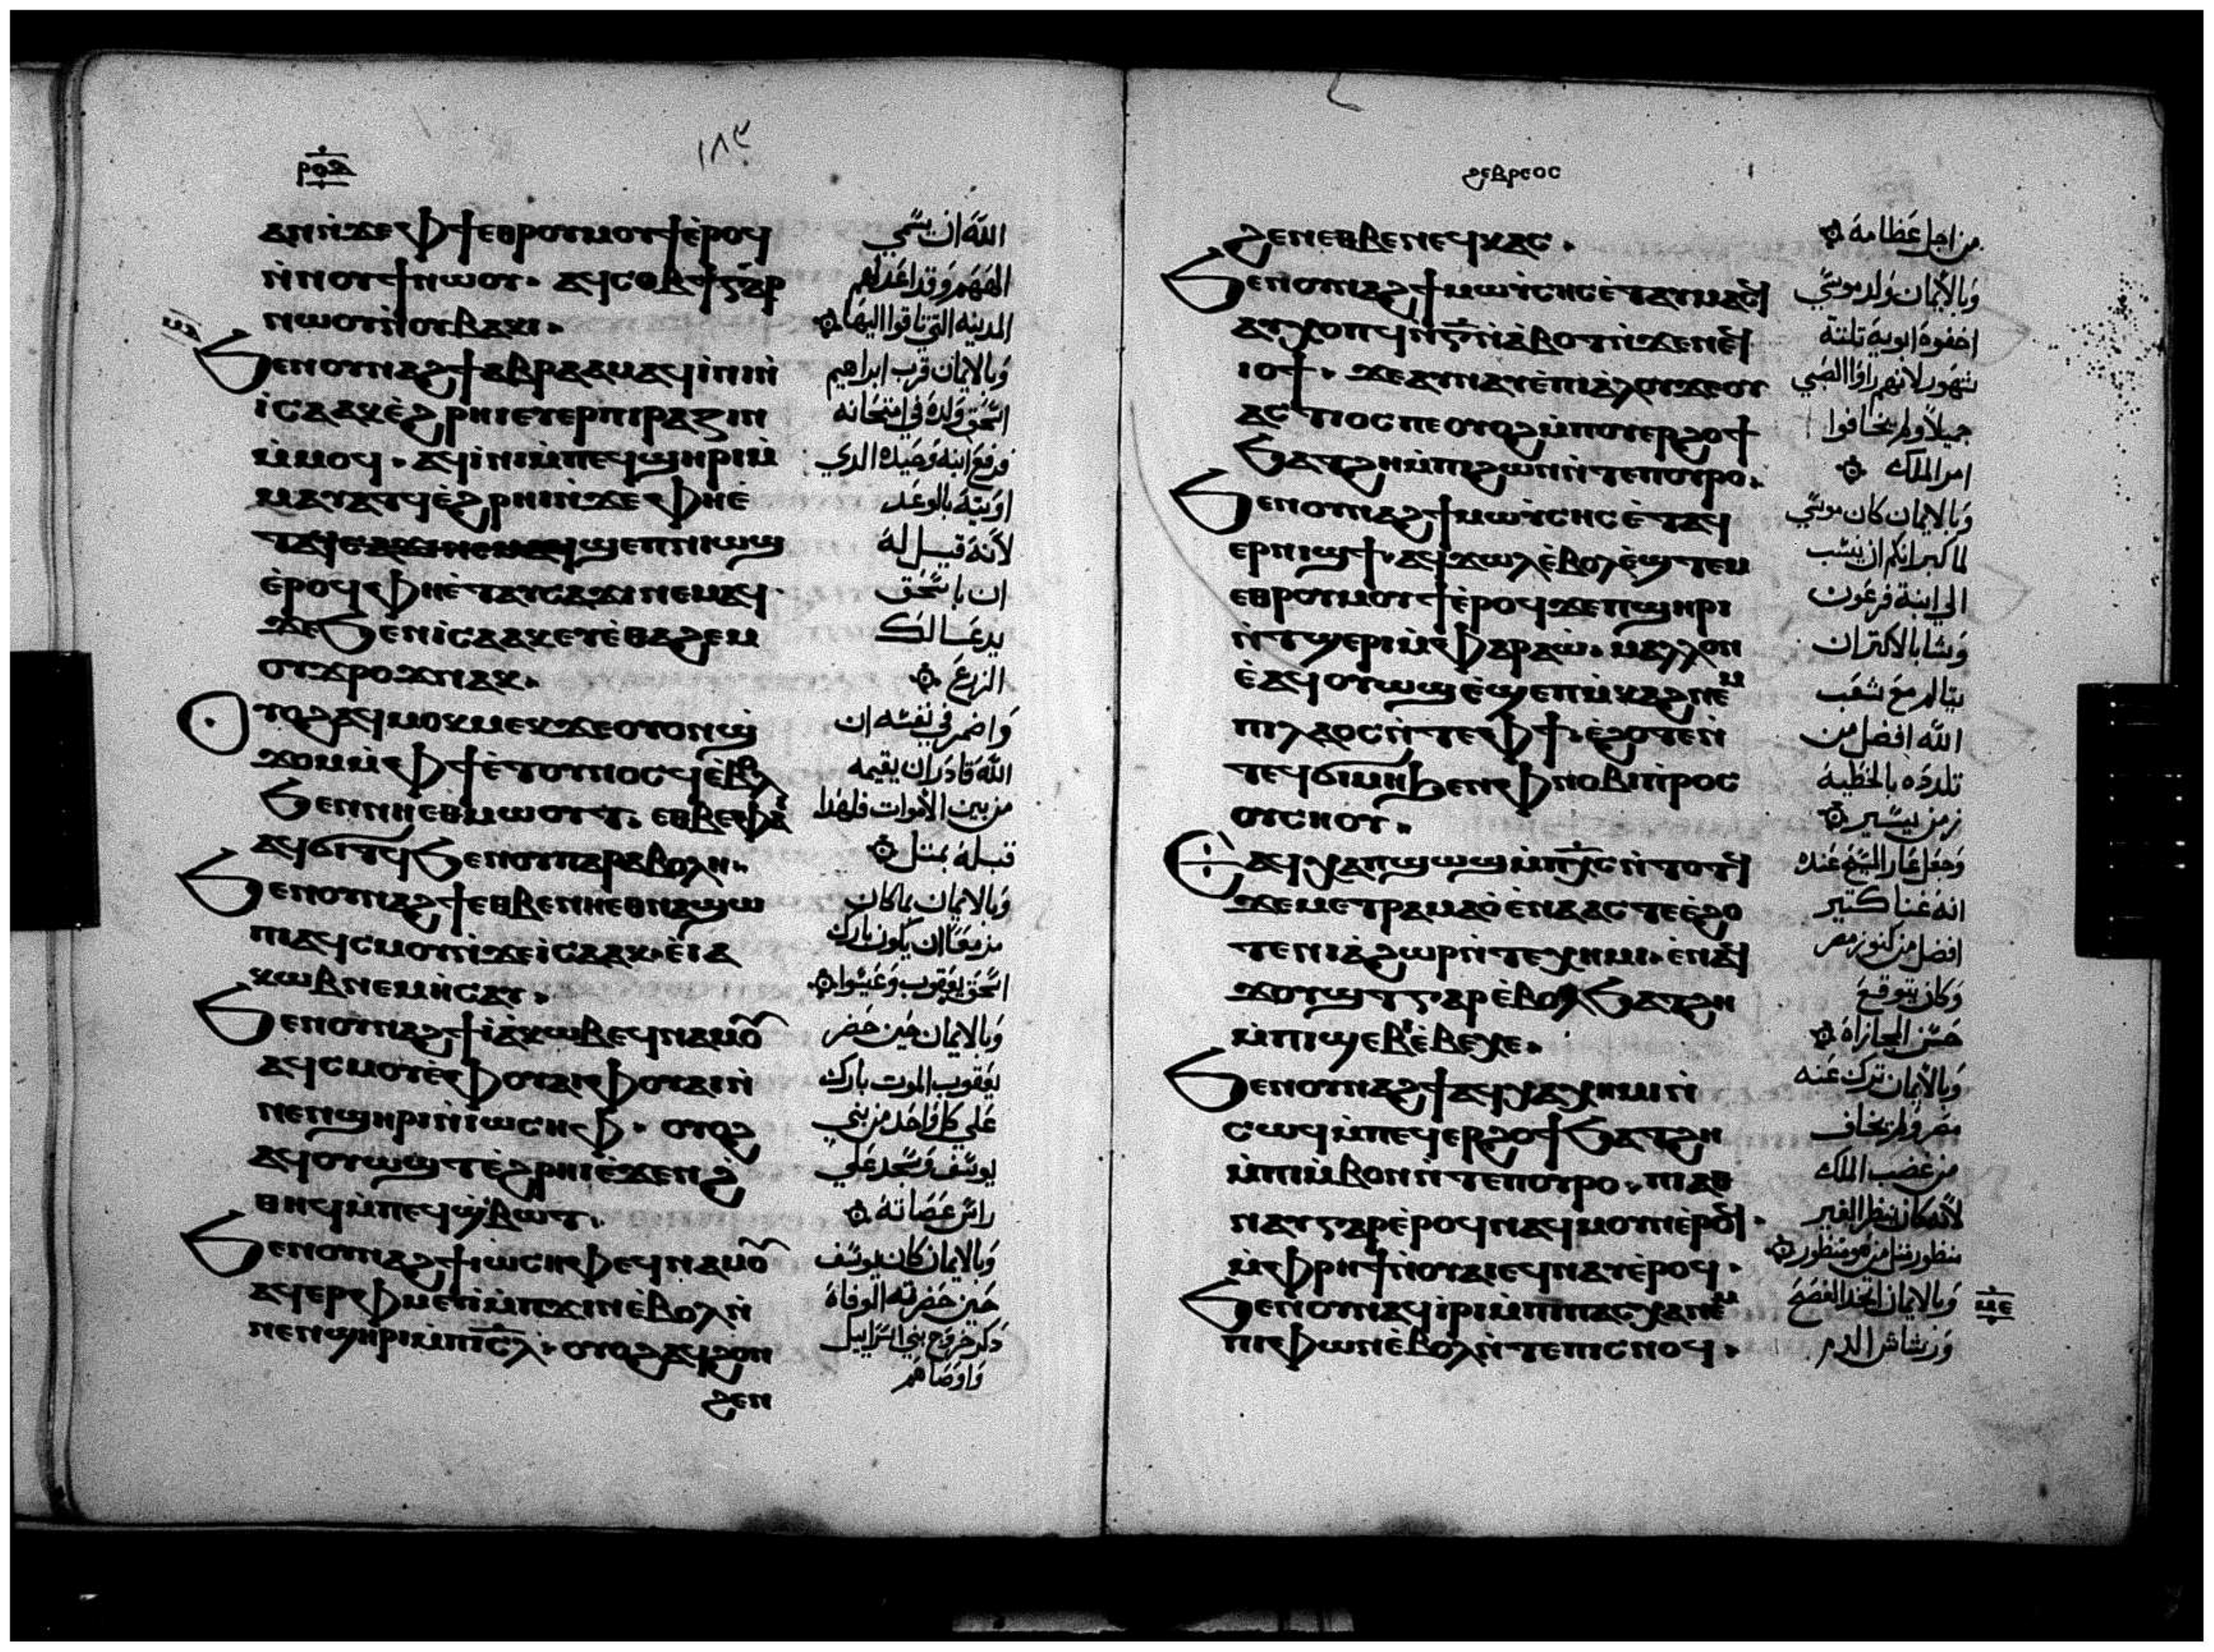 ⲣⲟⲇ
١٨٣
ⲁⲛⲛ̀ϫⲉⲫϯⲉⲑⲣⲟⲩⲙⲟⲩϯⲉ̀ⲣⲟϥ
ⲛ̀ⲛⲟⲩϯⲛⲱⲟⲩ. ⲁϥⲥⲟⲃϯⲅⲁⲣ
ⲛⲱⲟⲩⲛ̀ⲟⲩⲃⲁⲕⲓ.
ϧⲉⲛⲟⲩⲛⲁϩϯⲁⲃⲣⲁⲁⲙⲁϥⲓ̀ⲛⲓⲛ̀
ⲓ̀ⲥⲁⲁⲕⲉ̀ϩⲣⲏⲓⲉⲩⲉⲣⲡⲓⲣⲁⲍⲓⲛ
ⲙ̀ⲙⲟϥ. ⲁϥⲓ̀ⲛⲓⲙ̀ⲡⲉϥϣⲏⲣⲓⲙ̀
ⲙⲁⲩⲁⲧϥⲉ̀ϩⲣⲏⲓⲛ̀ϫⲉⲫⲏⲉ̀
ⲧⲁϥϣⲉⲡⲛⲓⲱϣ
ⲉ̀ⲣⲟϥⲫⲏⲉ̀ⲧⲁⲩⲥⲁϫⲓⲛⲉⲙⲁϥ.
ϫⲉϧⲉⲛⲓ̀ⲥⲁⲁⲕⲉⲩⲉ̀ⲑⲁϩⲉⲙ
ⲟⲩϫⲣⲟϫⲛⲁⲕ.
ⲟⲩⲟϩⲁϥⲙⲟⲕⲙⲉⲕϫⲉⲟⲩⲟⲛϣ
ϫⲟⲙⲙ̀ⲫϯⲉ̀ⲧⲟⲩⲛⲟⲥϥⲉ̀ⲃⲟⲗ
ϧⲉⲛⲛⲏⲉⲑⲙⲱⲟⲩⲧ. ⲉⲑⲃⲉⲫⲁⲓ
ⲁϥϭⲓⲧϥϧⲉⲛⲟⲩⲡⲁⲣⲁⲃⲟⲗⲏ.
ϧⲉⲛⲟⲩⲛⲁϩϯⲉⲑⲃⲉⲛⲏⲉⲑⲛⲁϣⲱ
ⲡⲓⲁϥⲥⲙⲟⲩⲛ̀ϫⲉⲓ̀ⲥⲁⲁⲕ. ⲉ̀ⲓⲁ
ⲕⲱⲃⲛⲉⲙⲏ̀ⲥⲁⲩ.
ϧⲉⲛⲟⲩⲛⲁϩϯⲓⲁ̀ⲕⲱⲃⲉϥⲛⲁⲙⲟ̅
ⲁϥⲥⲙⲟⲩⲉ̀ⲫⲟⲩⲁⲓⲫⲟⲩⲁⲓⲛ̀
ⲛⲉⲛϣⲏⲣⲓⲛ̀ⲓⲱⲥⲏⲫ. ⲟⲩⲟϩ
ⲁϥⲟⲩⲱϣⲧⲉ̀ϩⲣⲏⲓⲉ̀ϫⲉⲛϩ̀
ⲑⲏϥⲙ̀ⲡⲉϥϣ̀ⲃⲱⲧ.
ϧⲉⲛⲟⲩⲛⲁϩϯⲓⲱⲥⲏⲫⲉϥⲛⲁⲙⲟ̅
ⲁϥⲉⲣⲫⲙⲉⲩⲓ̀ⲙ̀ⲡϫⲓⲛⲉ̀ⲃⲟⲗⲛ̀
ⲛⲉⲛϣⲏⲣⲓⲙ̀ⲡⲓⲥ̅ⲗ. ⲟⲩⲟϩⲁϥϩⲟⲛ
ϩⲉⲛ
الله ان يسمي
المههم وقد اعد لهم
المدينه التي تاقوا اليها
وبالايمان قرب ابراهيم
اسحق ولده في امتحانه
فرفع ابنه وحيده الدي
اوتيه بالوعد
لانه قيل له
ان باسحق
يدعا لك
الزرع
واضمر في نفسه ان
الله قادر ان يقيمه
من بين الاموات فلهدا
قبله بمتل
وبالايمان بما كان
مزمعا ان يكون بارك
اسحق يعقوب وعيسوا
وبالايمان حين حضر
يعقوب الموت بارك
علي كل واحد من بني
يوسف وسجد علي
راس عصاته
وبالايمان كان يوسف
حين حضرته الوفاه
دكر خروج بني اسراييل
واوصاهم
ϩⲉⲃⲣⲉⲟⲥ
ϩⲉⲛⲉⲑⲃⲉⲛⲉϥⲕⲁⲥ.
ϧⲉⲛⲟⲩⲛⲁϩϯⲙⲱⲩ̀ⲥⲏⲥⲉ̀ⲧⲁⲩⲙⲁⲥϥ
ⲁⲩⲭⲟⲡϥⲛ̀ⲅ̅ⲛ̀ⲁ̀ⲃⲟⲧⲛ̀ϫⲉⲛⲉϥ
ⲓⲟϯ. ϫⲉⲁⲩⲛⲁⲩⲉ̀ⲡⲓⲁ̀ⲗⲟⲩϫⲉⲟⲩ
ⲁⲥⲧⲓⲟⲥⲡⲉⲟⲩⲟϩⲙ̀ⲡⲟⲩⲉⲣϩⲟϯ
ϧⲁⲧϩⲏⲙ̀ⲡⲓϩⲱⲛⲛ̀ⲧⲉⲡⲟⲩⲣⲟ.
ϧⲉⲛⲟⲩⲛⲁϩϯⲙⲱⲩ̀ⲥⲏⲥⲉ̀ⲧⲁϥ
ⲉⲣⲛⲓϣϯ. ⲁϥϫⲱⲗⲉ̀ⲃⲟⲗⲉ̀ϣⲧⲉⲙ
ⲉⲑⲣⲟⲩⲙⲟⲩϯⲉ̀ⲣⲟϥϫⲉⲡϣⲏⲣⲓ
ⲛ̀ⲧϣⲉⲣⲓⲙ̀ⲫⲁⲣⲁⲱ̀. ⲙⲁⲗⲗⲟⲛ
ⲉ̀ⲁϥⲟⲩⲱϣⲉ̀ϣⲉⲡⲙ̀ⲕⲁϩⲛⲉⲙ
ⲡⲓⲗⲁⲟⲥⲛ̀ⲧⲉⲫϯ. ⲉ̀ϩⲟⲧⲉⲛ̀
ⲧⲉϥϭⲓⲙⲏϧⲉⲛⲫⲛⲟⲃⲓⲡ̀ⲣⲟⲥ
ⲟⲩⲥⲏⲟⲩ.
ⲉⲁϥⲭⲁⲡϣⲱϣⲙ̀ⲡⲭ̅ⲥⲛ̀ⲧⲟⲧϥ
ϫⲉⲙⲉⲧⲣⲁⲙⲁⲟ̀ⲉ̀ⲛⲁⲁⲥⲧⲉⲉ̀ϩⲟ
ⲧⲉⲛⲓⲁ̀ϩⲱⲣⲛ̀ⲧⲉⲭⲏⲙⲓ. ⲉ̀ⲛⲁϥ
ϫⲟⲩϣⲧⲅⲁⲣⲉ̀ⲃⲟⲗϧⲁⲧϩⲏ
ⲙ̀ⲡⲓϣⲉⲃⲓⲉ̀ⲃⲉⲭⲉ.
ϧⲉⲛⲟⲩⲛⲁϩϯⲁϥⲭⲁⲭⲏⲙⲓⲛ̀
ⲥⲱϥⲙ̀ⲡⲉϥⲉⲣϩⲟϯϧⲁⲧϩⲏ
ⲙ̀ⲡⲓⲙ̀ⲃⲟⲛⲛ̀ⲧⲉⲡⲟⲩⲣⲟ. ⲡⲓⲁⲑ
ⲛⲁⲩⲅⲁⲣⲉ̀ⲣⲟϥⲛⲁϥⲙⲟⲩⲛⲉ̀ⲣⲟϥ.
ⲙ̀ⲫⲣⲏϯⲛ̀ⲟⲩⲁⲓⲉϥⲛⲁⲩⲉ̀ⲣⲟϥ.
ϧⲉⲛⲟⲩⲛⲁϥⲓ̀ⲣⲓⲙ̀ⲡⲓⲡⲁⲥⲭⲁⲛⲉⲙ
ⲡⲓⲫⲱⲛⲉ̀ⲃⲟⲗⲛ̀ⲧⲉⲡⲓⲥⲛⲟϥ.
من اجل عظامه
وبالايمان ولد موسي
اخفوه ابويه تلتة
شهور لانهم راوا الصبي
جميلا ولم يخافوا
امر الملك
وبالايمان كان موسي
لما كبر انكر ان ينسب
الي ابنة فرعون
وشا بالاكتر ان
يتالم مع شعب
الله افضل من
تلدده بالخطيه
زمن يسير
وجعل عار المسيح عنده
انه غنا كتير
افضل من كنوز مصر
وكان يتوقع
حسن المجازاه
وبالايمان ترك عنه
مصر ولم يخاف
من غضب الملك
لانه كان ينظر الغير
منظور متل من هو منظور
وبالايمان اتخد الفصح
ورشاش الدم
ⲙⲉ